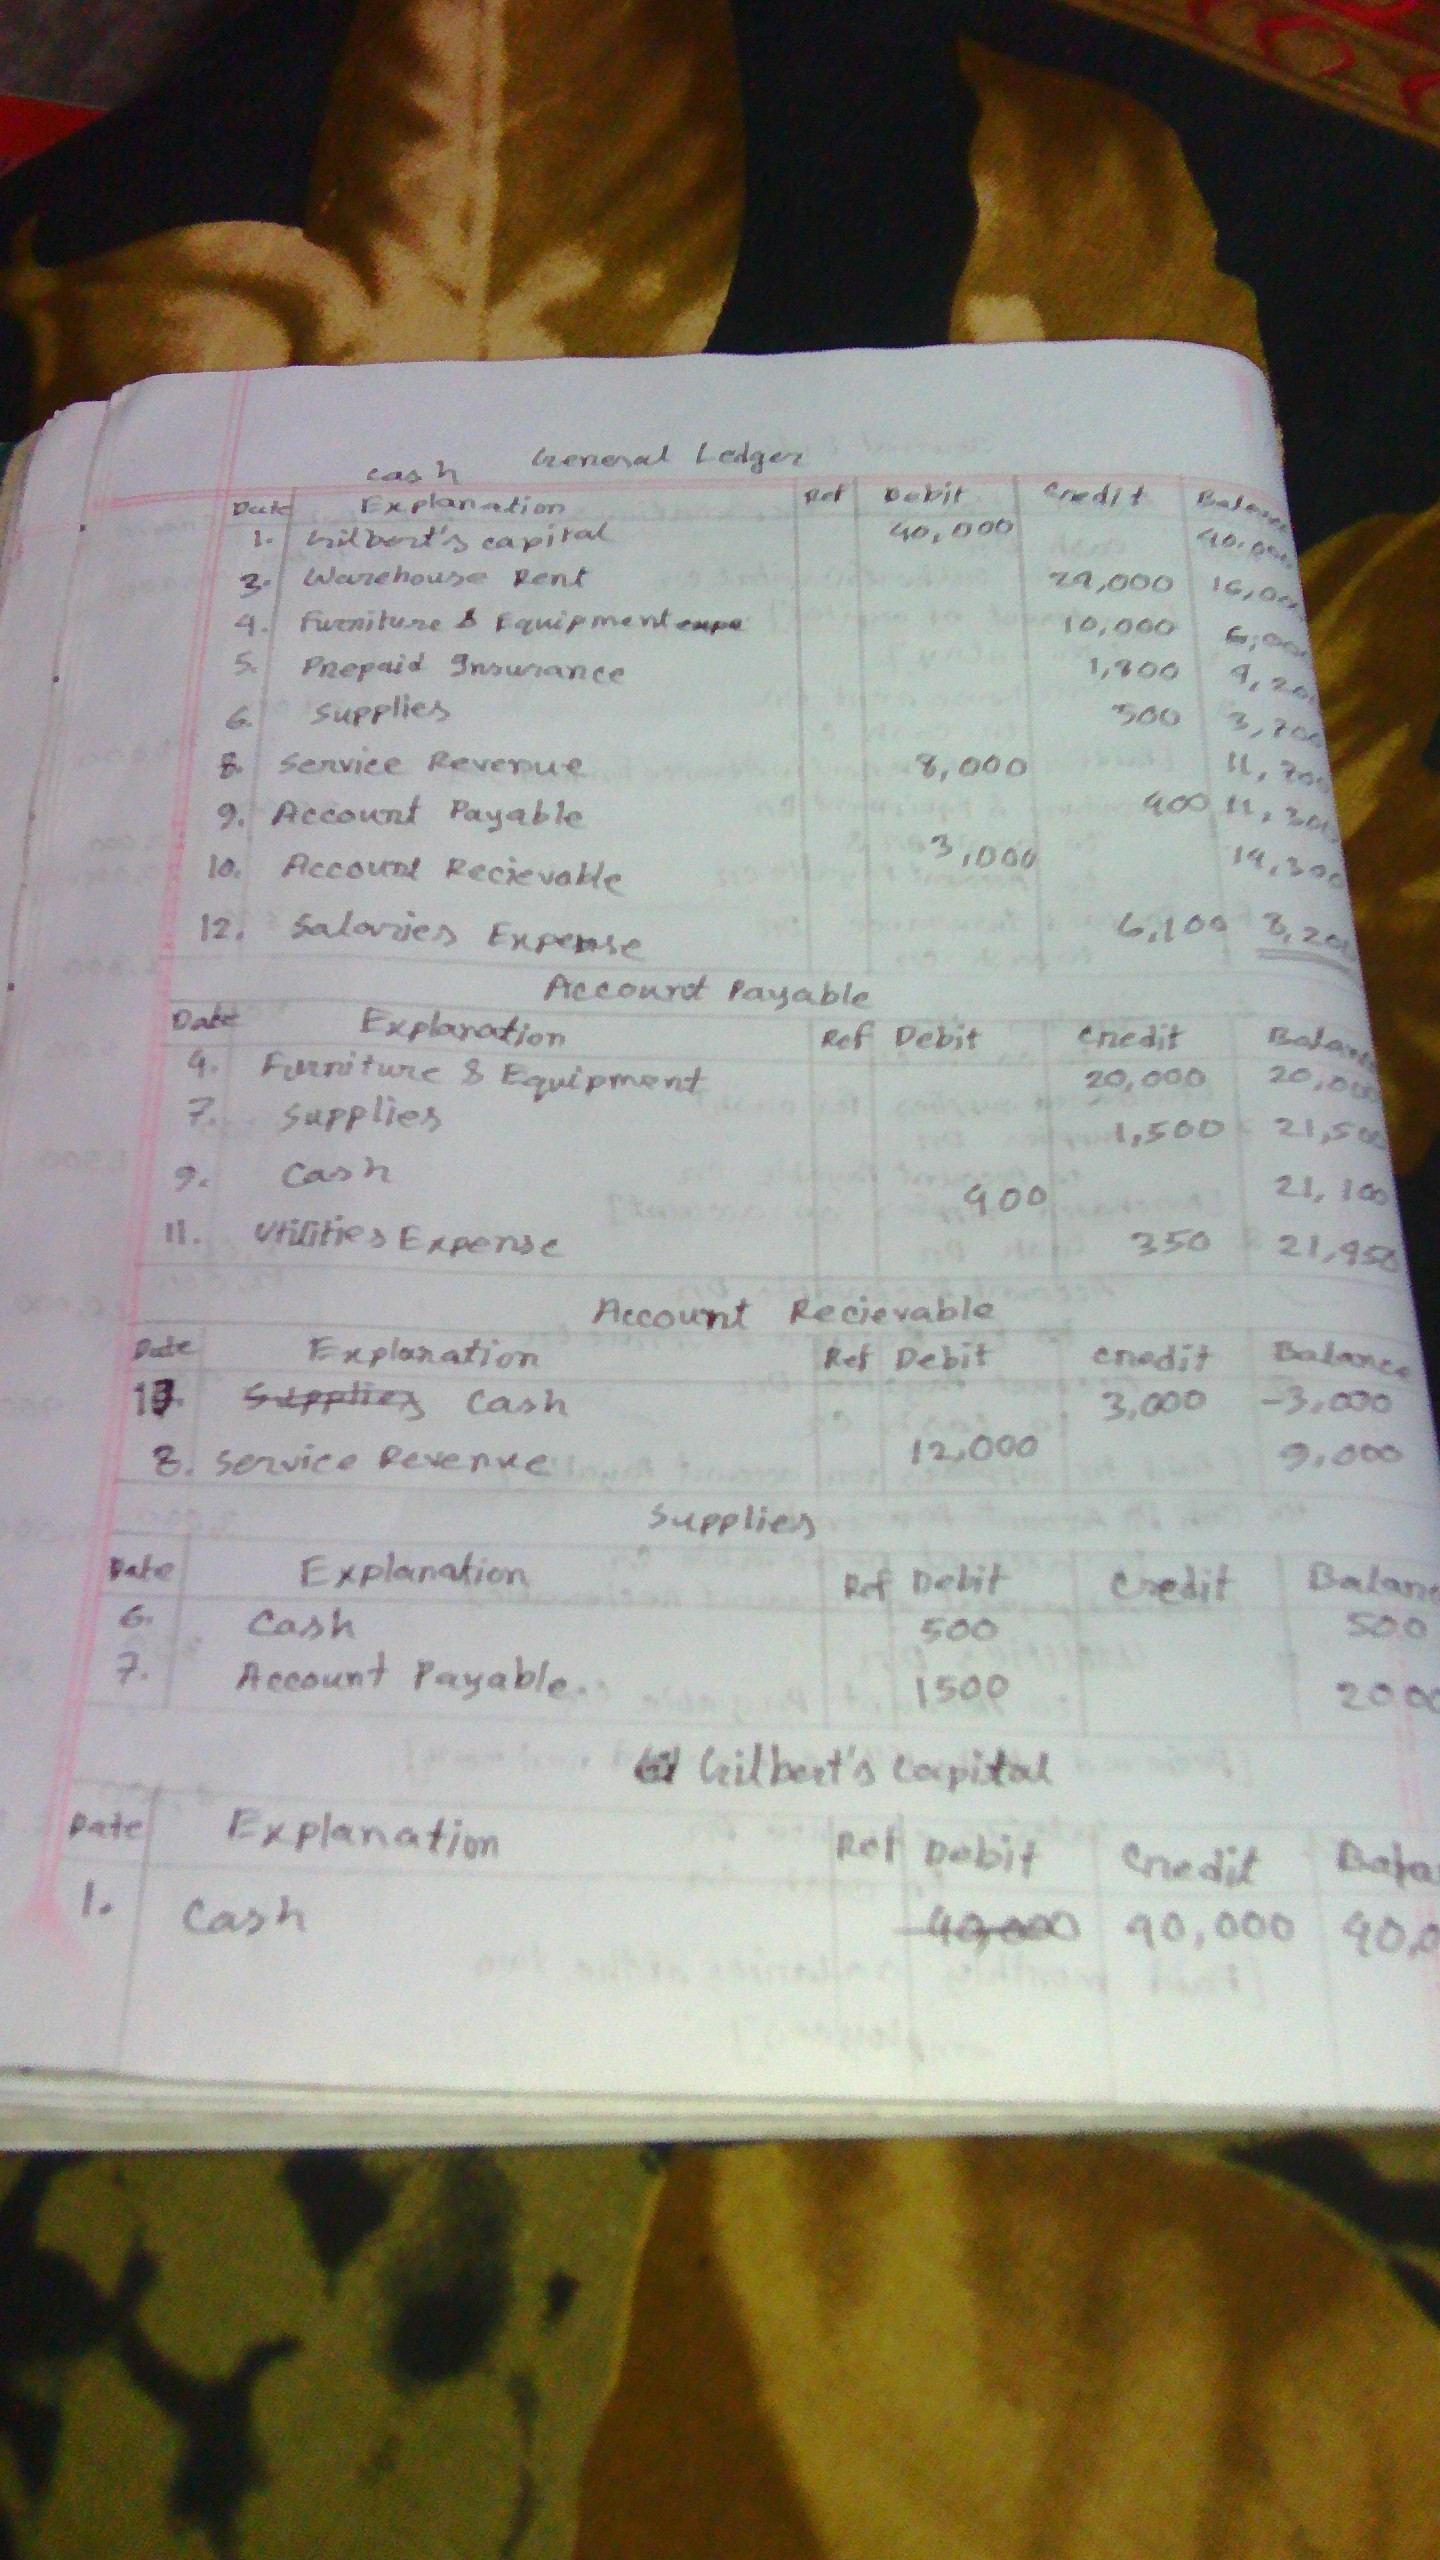 General Ledger
Cash
Date Explanation Ref Debit Credit Balance
1. Gilbert's capital 40,000 40,000
3. Warehouse Rent 24,000 16,00
4. Furniture & Equipment 10,000 6,00
5. Prepaid Insurance 1,800 4,20
6. Supplies 500 3,700
8. Service Revenue 8,000 11,700
9. Account Payable 400 11,300
10. Account Recievable 3,000 14,300
12. Salaries Expense 6,100 8,20
Account Payable
Date Explanation Ref Debit Credit Balanc
4. Furniture & Equipment 20,000 20,000
7. Supplies 1,500 21,500
9. Cash 400 21,100
11. Utilities Expense 350 21,450
Account Recievable
Date Explanation Ref Debit Credit Balance
Supplies Cash 3,000 -3,000
8. Service Revenue 12,000 9,000
Supplies
Date Explanation Ref Debit Credit Balanc
6. Cash 500 500
7. Account Payable. 1500 2000
Gilbert's Capital
Date Explanation Ref Debit Credit Bala
1. Cash 40,000 40,000 40,0